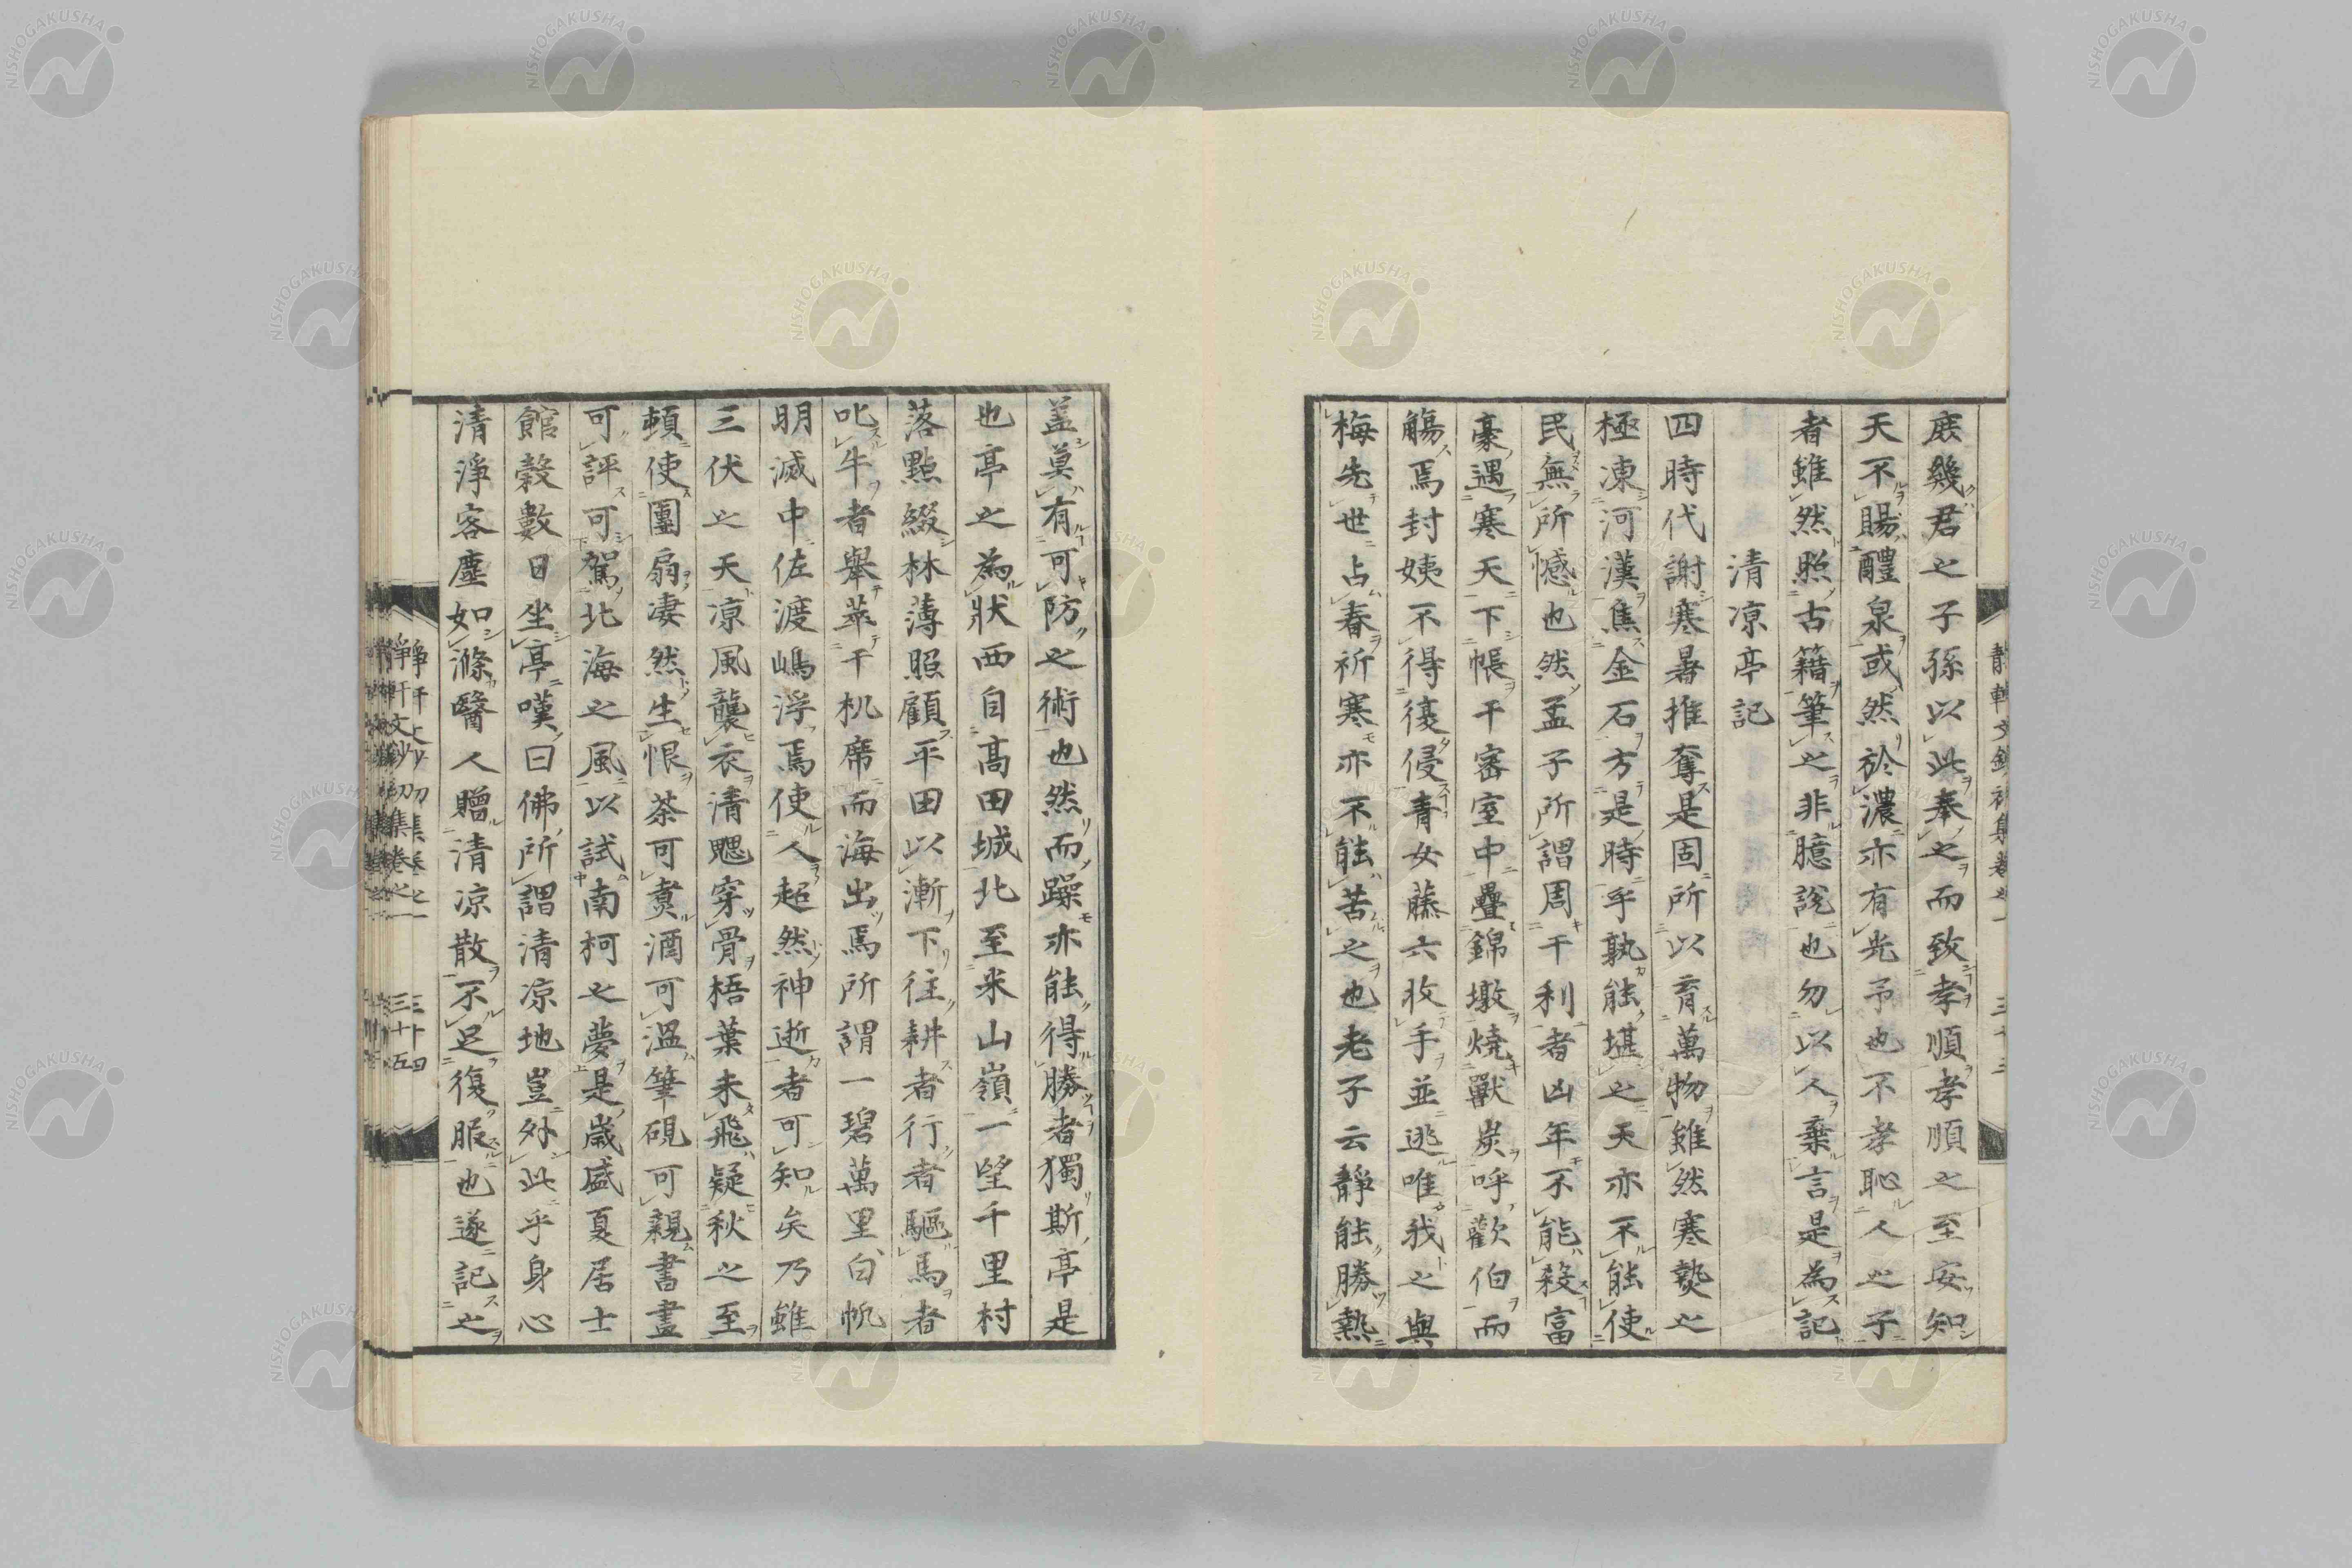 庶幾君之子孫以此奉之而致孝順孝順之至安知
天不賜醴泉或然於濃亦有光予也不孝恥人之子
者雖然照古籍筆之非臆說也勿以人棄言是為記
清凉亭記
四時代謝寒暑推奪是固所以育萬物雖然寒熱之
極凍河漢焦金石方是時乎孰能堪之天亦不能使
民無所憾也然孟子所謂周于利者凶年不能殺富
豪遇寒天下帳于審室中疊錦墩燒獸炭呼歡伯而
觴焉封姨不得侵青女藤六收手並逃唯我之與
梅先世占春祈寒亦不能苦之也老子云靜能勝熱
盖莫有可防之術也然而躁亦能得勝者獨斯亭是
也亭之為狀西自高田城北至米山嶺一望千里村
落點綴林薄照顧平田以漸下往耕者行者驅馬者
叱牛者舉萃于机席而海出焉所謂一碧萬里白帆
明滅中佐渡嶋浮焉使人超然神逝者可知矣乃雖
三伏之天凉風襲衣清颸穿骨梧葉未飛疑秋之至
頓使團扇凄然生恨茶可煑酒可溫筆硯可親書畫
可評可駕北海之風以試南柯之夢是歲盛夏居士
館穀數日坐亭嘆曰佛所謂清凉地豈外此乎身心
清淨客塵如滌醫人贈清凉散不足復服也遂記之
靜軒文鈔初集卷之一
三十五